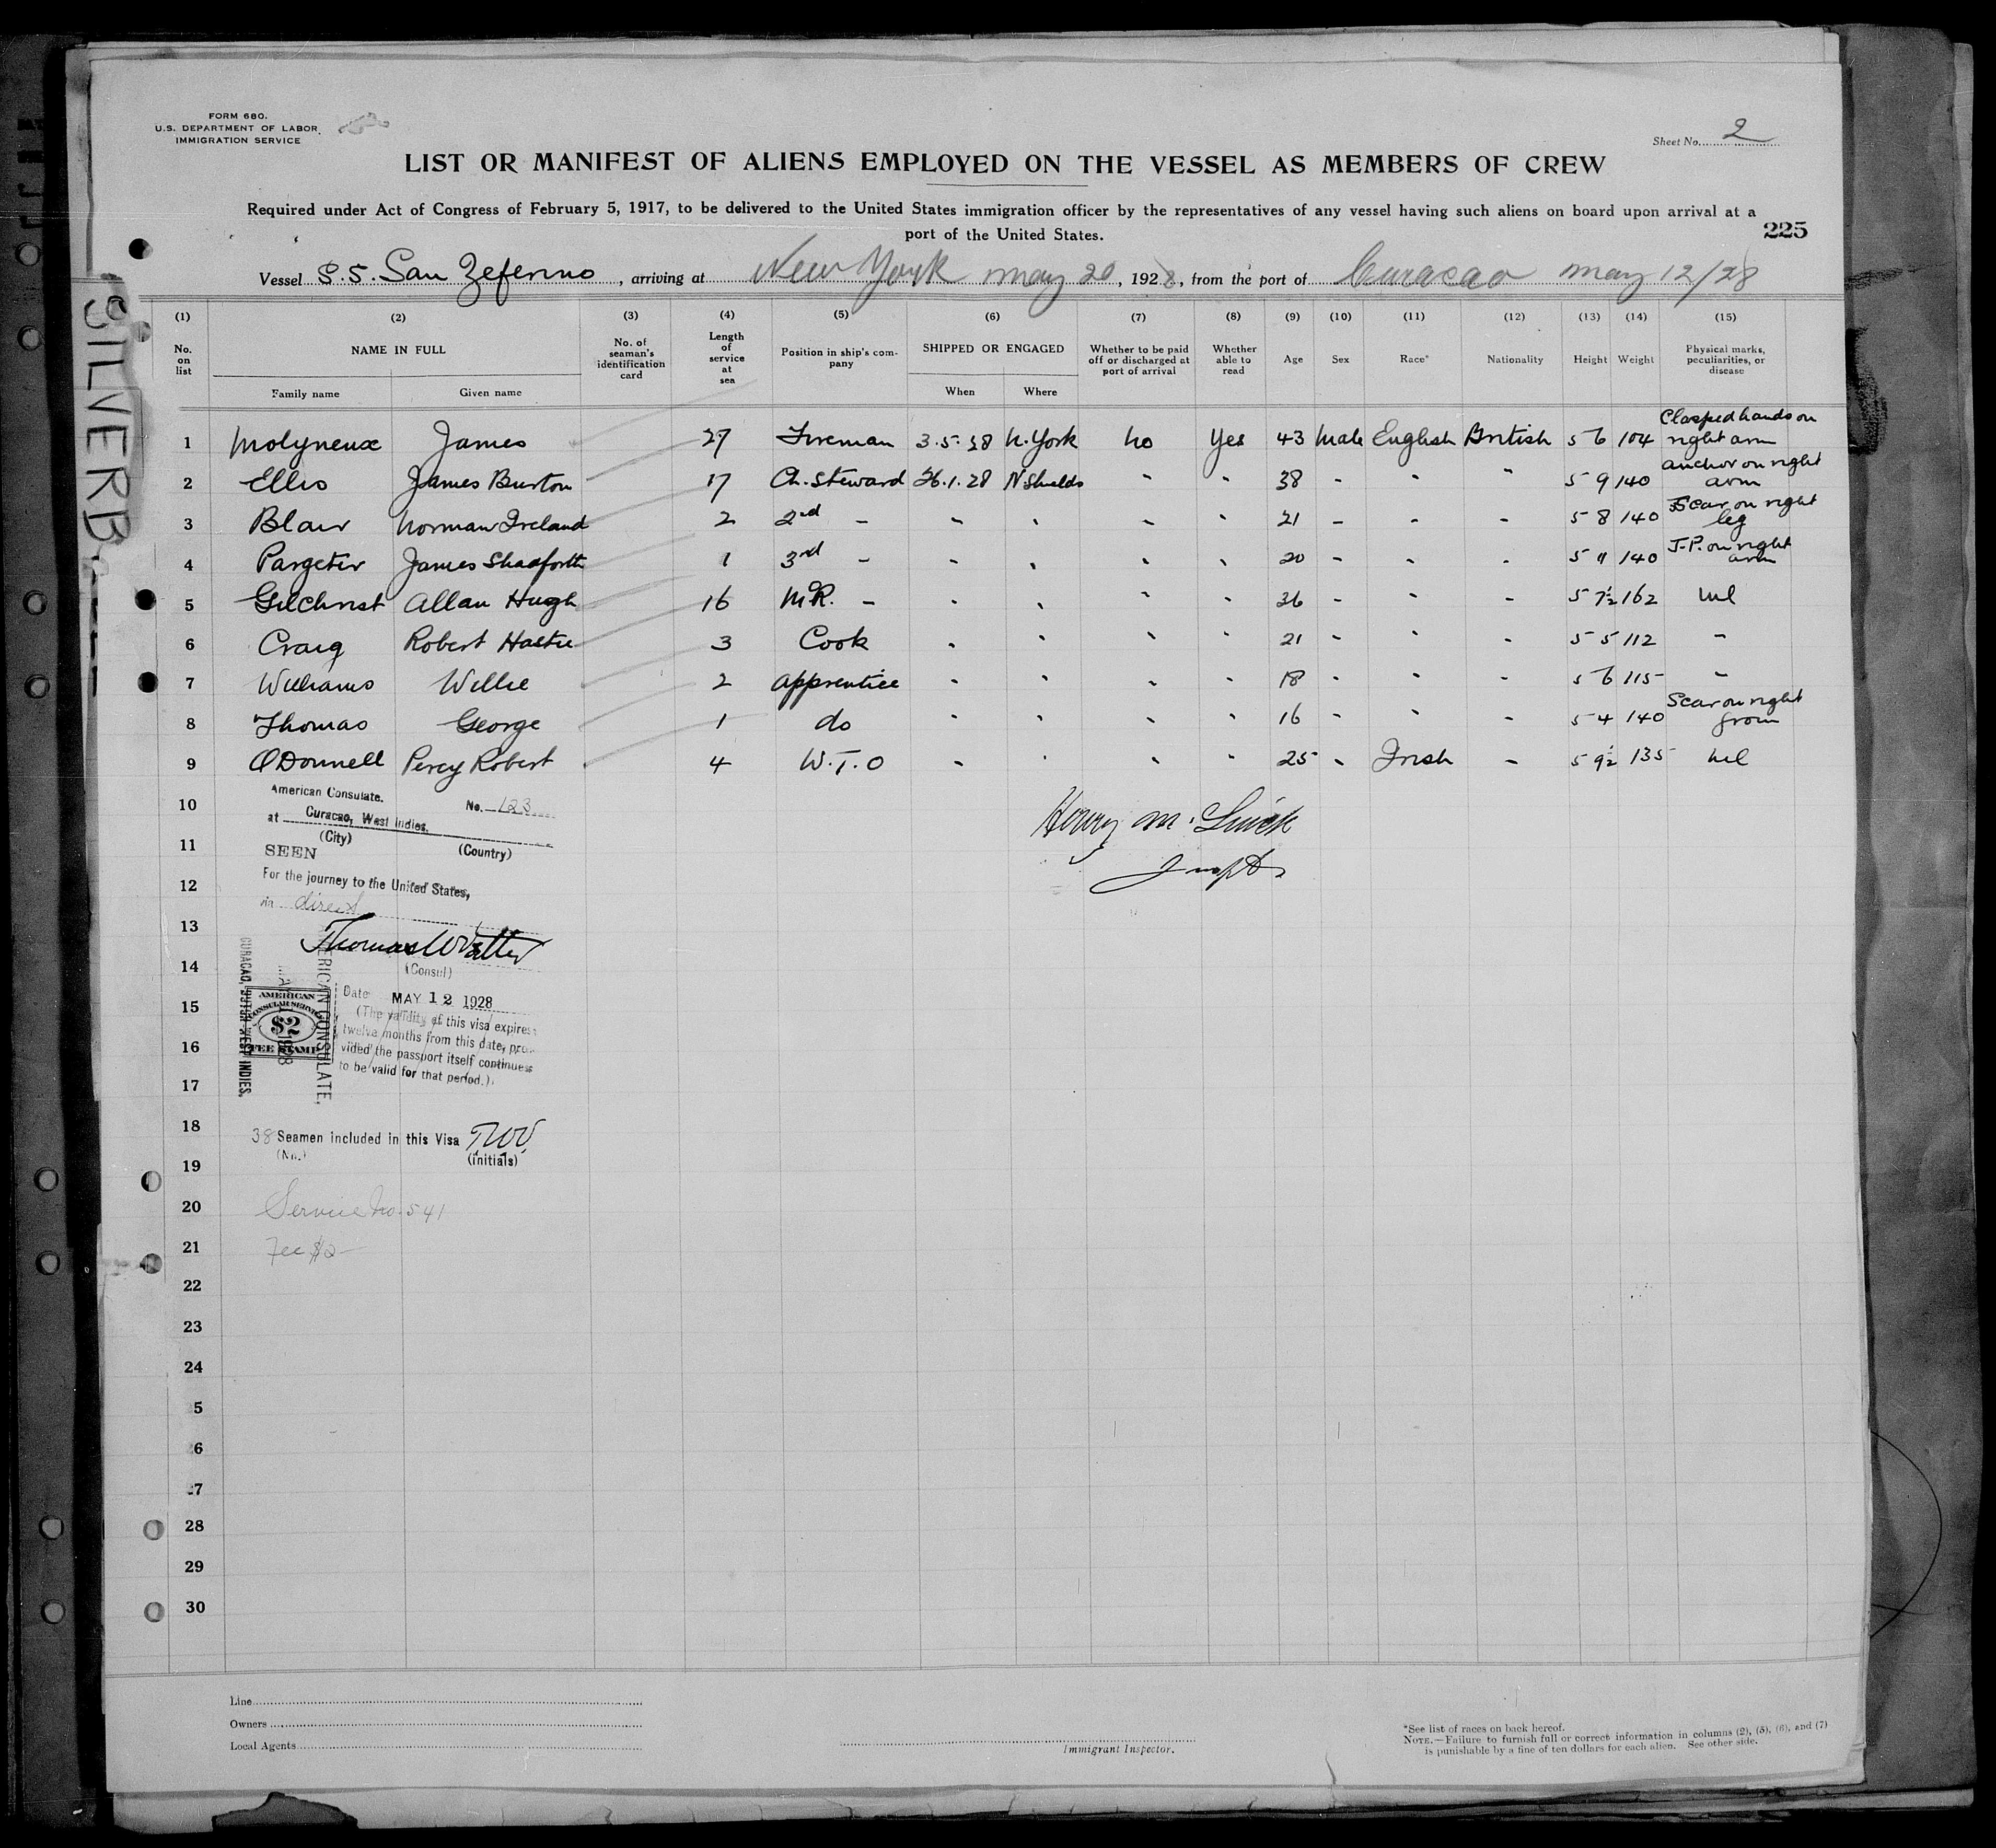 FORM 680.
U.S. DEPARTMENT OF LABOR
IMMIGRATION SERVICE
Sheet No. 2
LIST OR MANIFEST OF ALIENS EMPLOYED ON THE VESSEL AS MEMBERS OF CREW
Required under Act of Congress of February 5, 1917, to be delivered to the United States immigration officer by the representatives of any vessel having such aliens on board upon arrival at a
port of the United States.
225
Vessel S.S. San Zeferino, arriving at New York May 20, 1928, from the port of Curacao May 12/28
SILVERB
(1) (2) (3) (4) (5) (6) (7) (8) (9) (10) (11) (12) (13) (14) (15)
No. on list
NAME IN FULL
Family name
Given name
No. of seaman's identification card
Length of service at sea
Position in ship's company
SHIPPED OR ENGAGED
When
Where
Whether to be paid off or discharged at port of arrival
Whether able to read
Age
Sex
Race*
Nationality
Height
Weight
Physical marks, peculiarities, or disease
1 Molyneux James 27 Fireman 3.5.28 N. York No Yes 43 Male English British 5 6 104 Clasped hands on right arm
2 Ellis James Burton 17 Ch. Steward 26.1.28 N Shields " " 38 " " " 5 9 140 anchor on right arm
3 Blair Norman Ireland 2 2nd " " " " " 21 " " " 5 8 140 Scar on right leg
4 Pargeter James Shadforth 1 3rd " " " " " 20 " " " 5 11 140 J.P. on right arm
5 Gilchrist Allan Hugh 16 M.R. " " " " " 36 " " " 5 7½ 162 Nil
6 Craig Robert Hastie 3 Cook " " " " 21 " " " 5 5 112 "
7 Williams Willie 2 apprentice " " " " 18 " " " 5 6 115 "
8 Thomas George 1 do " " " " 16 " " " 5 4 140 Scar on right groin
9 O'Donnell Percy Robert 4 W.T.O " " " " 25 " Irish " 5 9½ 135 Nil
10
11
12
13
14
15
16
17
18
19
20
21
22
23
24
5
6
7
28
29
30
American Consulate.
No. 123
at Curacao, West Indies.
(City)
(Country)
SEEN
For the journey to the United States,
via direct
(Consul)
Date MAY 12 1928
(The validity of this visa expires
twelve months from this date, pro-
vided the passport itself continues
to be valid for that period.)
AMERICAN
CONSULAR SERVICE
$2
FEE STAMP
AMERICAN CONSULATE,
CURACAO, DUTCH WEST INDIES.
38 Seamen included in this Visa
(No.)
(Initials)
Service No. 541
Fee $2
Line
Owners
Local Agents
Immigrant Inspector.
*See list of races on back hereof.
NOTE.—Failure to furnish full or correct information in columns (2), (5), (6), and (7)
is punishable by a fine of ten dollars for each alien. See other side.